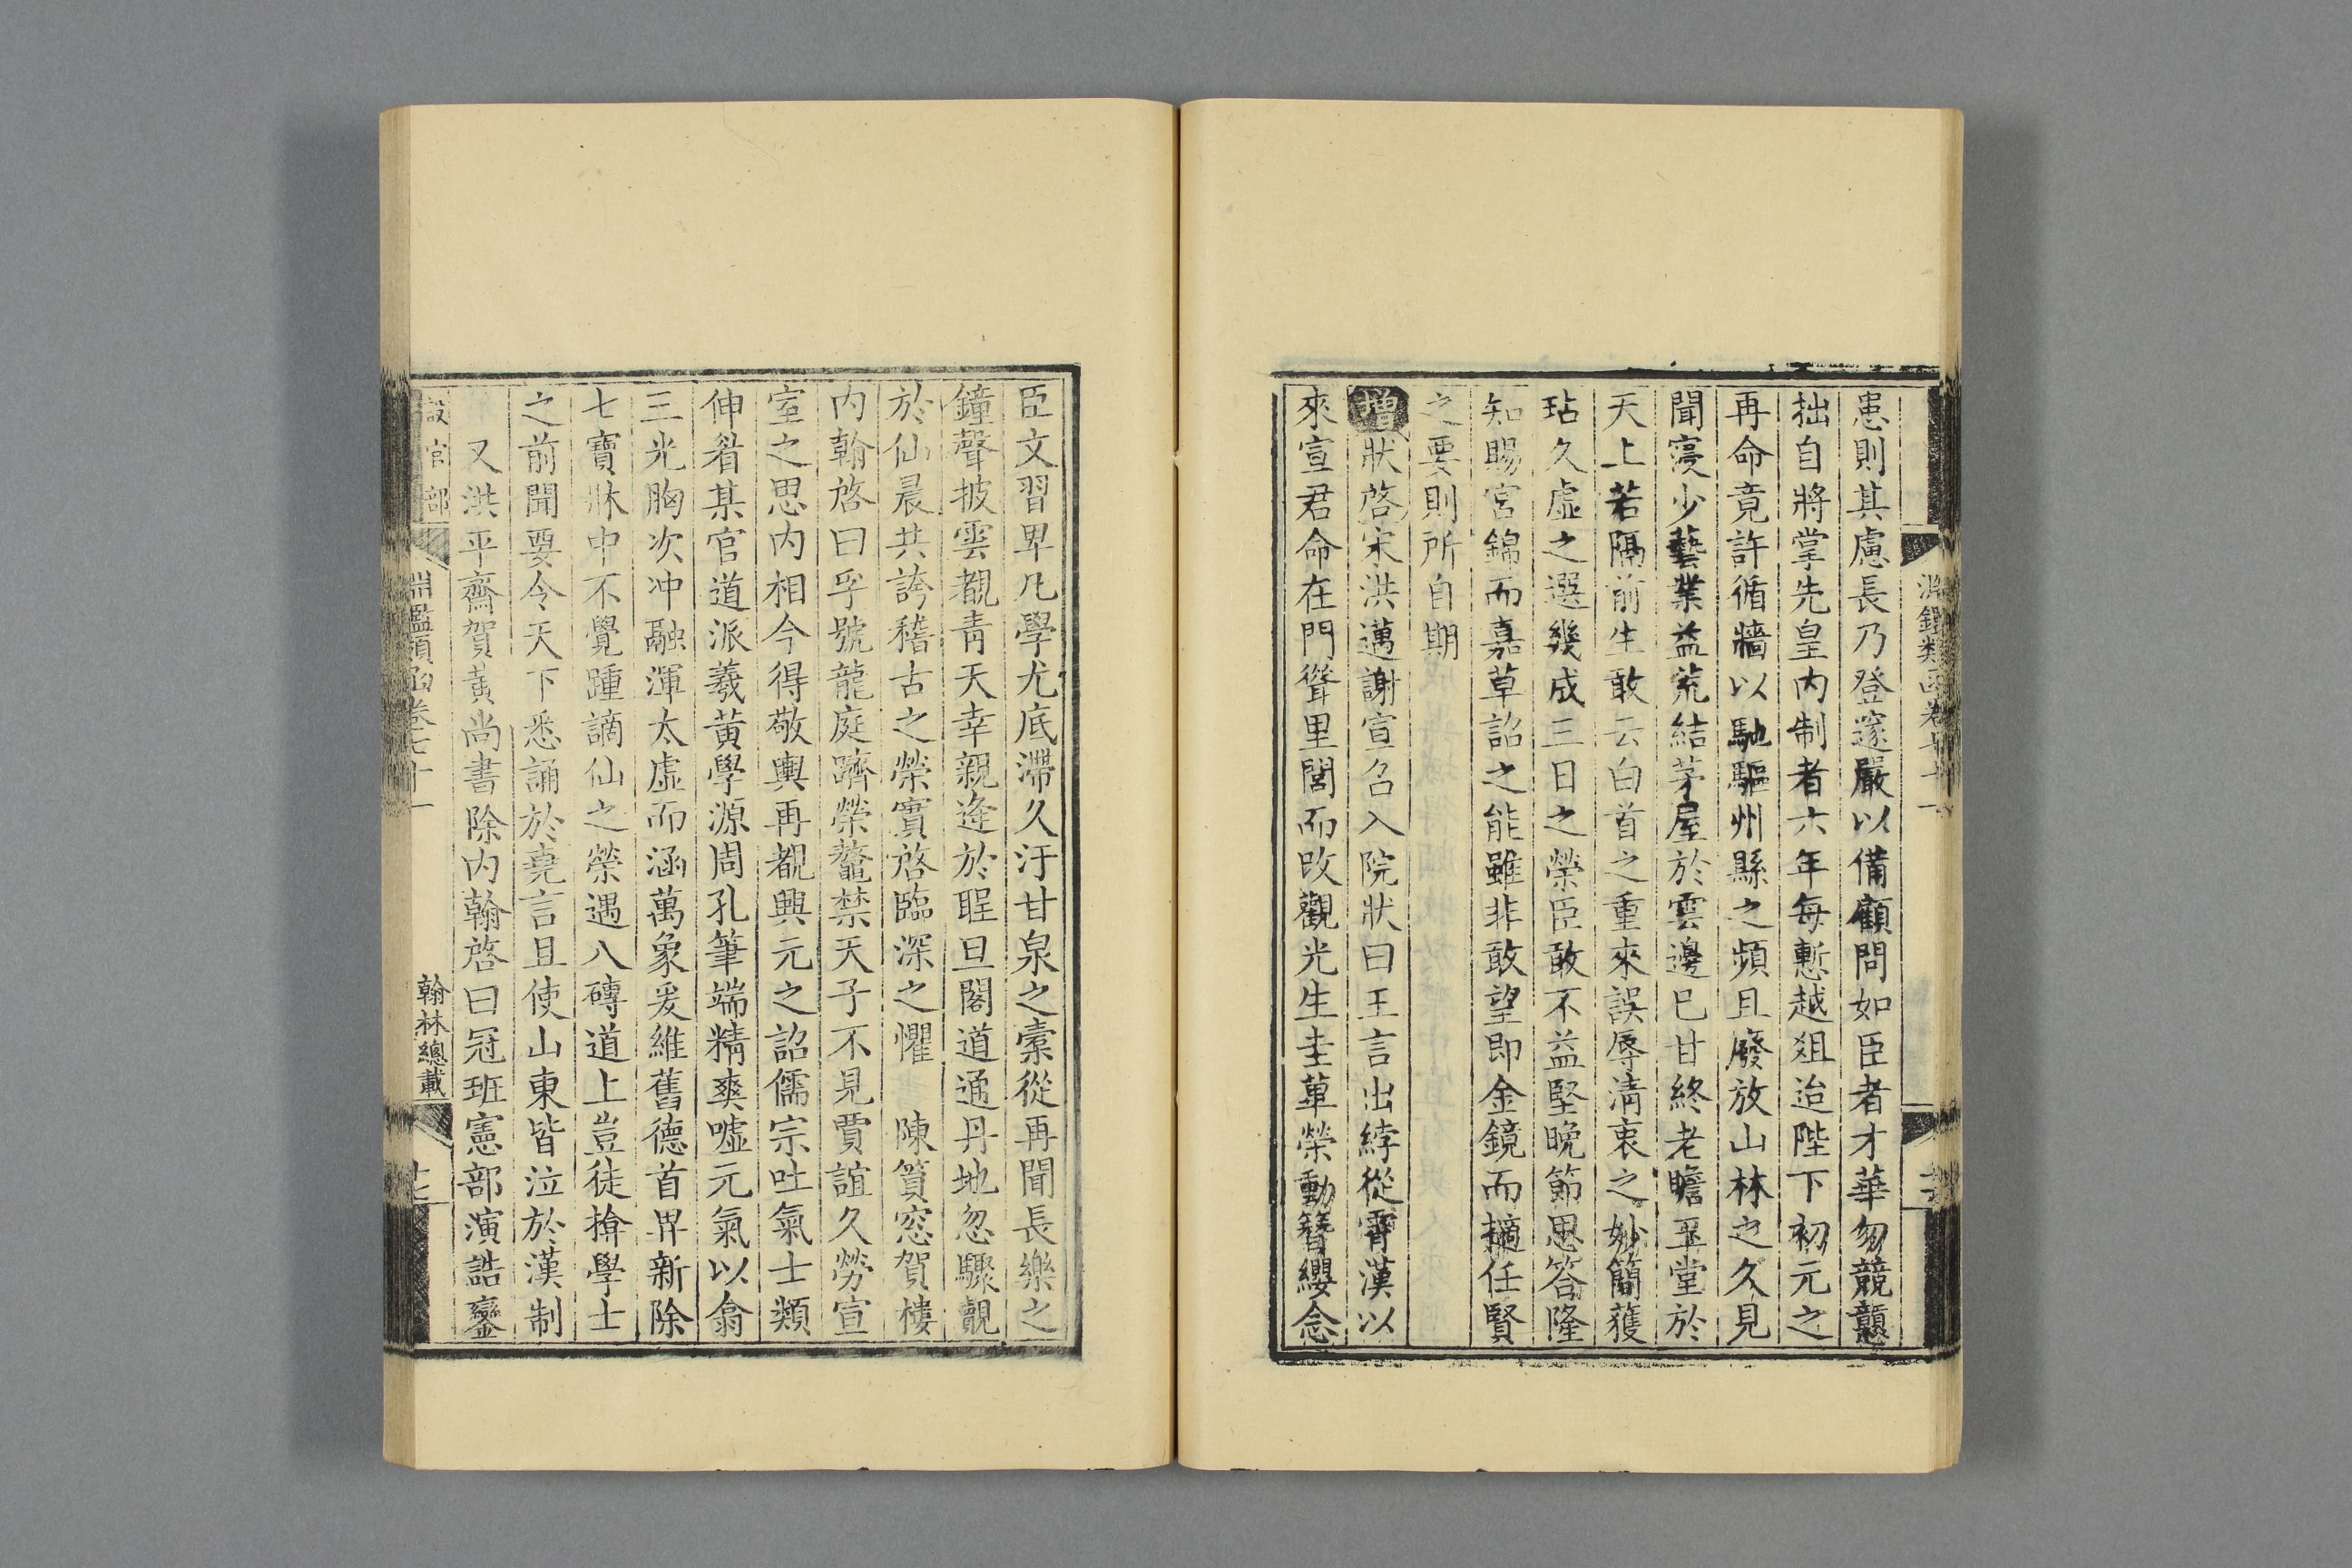 患則其慮長乃登邃嚴以備顧問如臣者才華勿競戇
拙自將掌先皇内制者六年每慙越俎迨陛下初元之
再命竟許循牆以馳驅州縣之頻且廢放山林之久見
聞寖少藝業益荒結茅屋於雲邊已甘終老瞻玉堂於
天上若隔前生敢云白首之重來誤辱清衷之妙簡獲
玷久虛之選幾成三日之榮臣敢不益堅晚節思答隆
知賜宮錦而嘉草詔之能雖非敢望即金鏡而摘任賢
之要則所自期
增狀啓宋洪邁謝宣召入院狀曰王言出綍從霄漢以
來宣君命在門聳里閭而改觀光生圭蓽榮動簪纓念
臣文習卑凡學尤底滯久汙甘泉之橐從再聞長樂之
鐘聲披雲覩青天幸親逢於聖旦閣道通丹地忽驟覿
於仙晨共誇稽古之榮實啓臨深之懼 陳篔窓賀樓
内翰啓曰孚號龍庭躋榮鼇禁天子不見賈誼久勞宣
室之思内相今得敬輿再覩興元之詔儒宗吐氣士類
伸眉某官道派羲黃學源周孔筆端精爽噓元氣以翕
三光胸次冲融渾太虛而涵萬象爰維舊德首畀新除
七寶牀中不覺踵謫仙之榮遇八磚道上豈徒揜學士
之前聞要令天下悉誦於堯言且使山東皆泣於漢制
又洪平齋賀黃尚書除内翰啓曰冠班憲部演誥鑾
設官部 淵鑑類函卷七十一 翰林總載